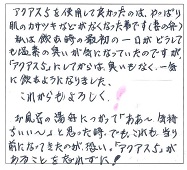 アクアスSを使用して良かったのは、やっぱり
肌のカサツキなどがなくなった事です(冬の分)
私は飲む時の最初の一口がどうしても
塩素の臭いが気になっていたのですが
「アクアスS」にしてからは、臭いもなく、一気
に飲めるようになりました。
これからもよろしく。
お風呂の湯舟につかって「ああ〜気持
ちいい〜」と思った時、でも、これも、当り
前になってきたのが、恐い。「アクアスS」が
あることを忘れずに!